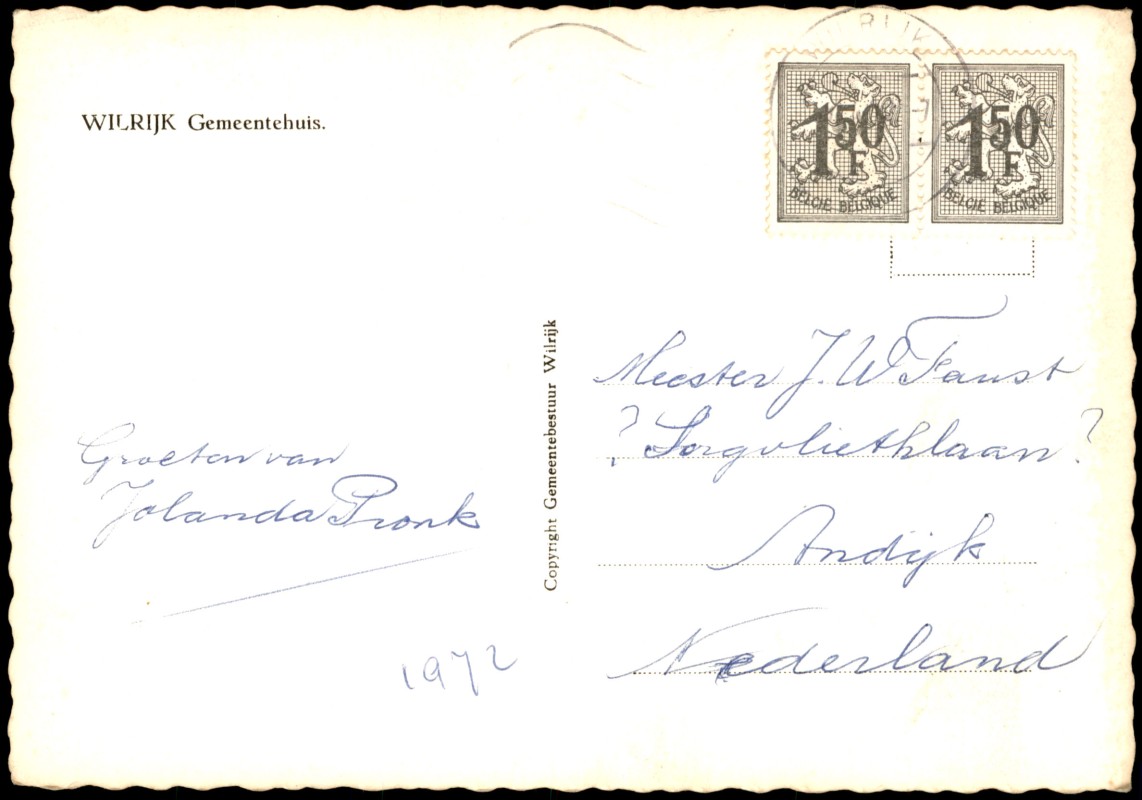 WILRIJK Gemeentehuis.
1 50 F
BELGIË BELGIQUE
1 50 F
BELGIË BELGIQUE
Groeten van
Jolanda Pronk
1972
Copyright Gemeentebestuur Wilrijk
Meester J. W Faust
? Sorgvliethlaan ?
Andijk
Nederland